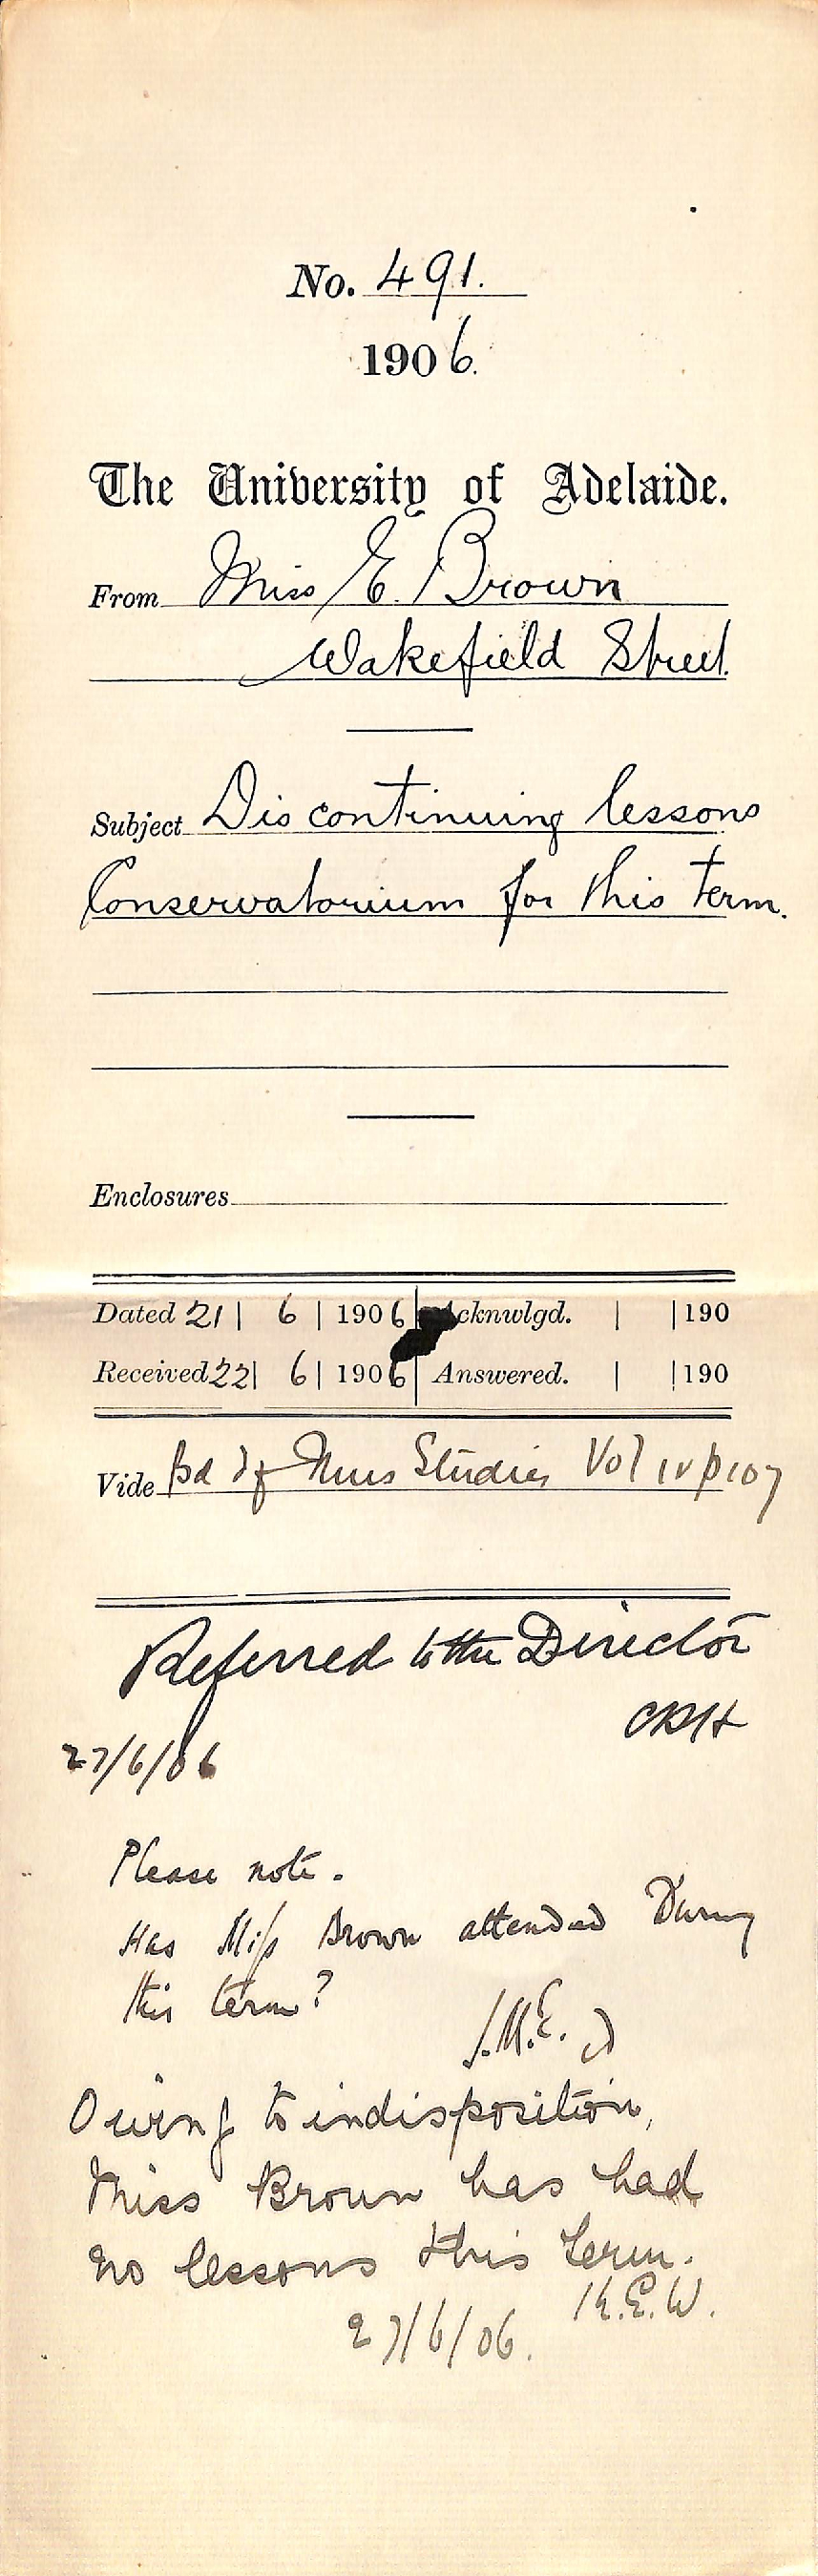 No. 491.
1906.
The University of Adelaide.
From Miss E. Brown
Wakefield Street.
Subject Discontinuing lessons
Conservatorium for this term.
Enclosures
Dated 21 | 6 | 1906 | Acknwlgd. | | 190
Received 22 | 6 | 1906 | Answered. | | 190
Vide Bd of Mus Studies Vol IV p 107
Referred to the Director
CRH
27/6/06
Please note.
Has Miss Brown attended During
this term?
J.M.E.
Owing to indisposition,
Miss Brown has had
no lessons this term.
K.E.W.
27/6/06.